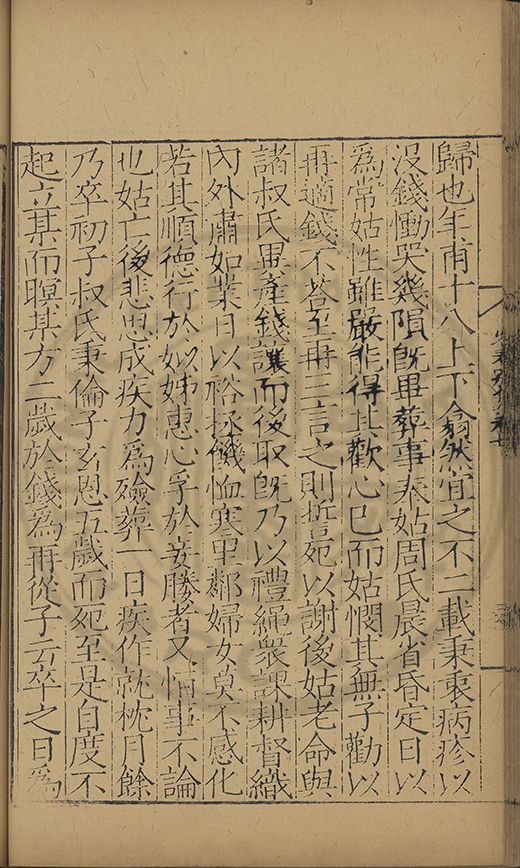 歸也年甫十八上下翕然宜之不二載秉衷病疹以
沒錢慟哭幾隕旣畢葬事奉姑周氏晨省昏定日以
爲常姑性雖嚴能得其歡心已而姑憫其無子勸以
再適錢不荅至再三言之則誓死以謝後姑老命與
諸叔氏異產錢讓而後取旣乃以禮繩衆課耕督織
內外肅如業日以裕拯饑恤寒里鄰婦女莫不感化
若其順德行於姒娣惠心孚於妾媵者又恒事不論
也姑亡後悲思成疾力爲殮葬一日疾作就枕月餘
乃卒初子叔氏秉倫子玄恩五歲而死至是自度不
起立其而瞑某方二歲於錢爲再從子云卒之日爲